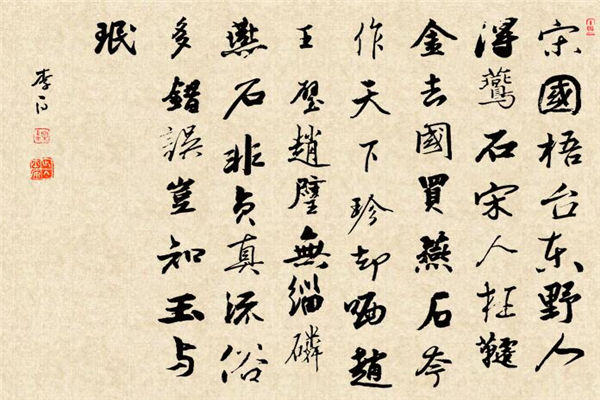 宋國梧台东野人
淂鷰石宋人枉韆
金去國買燕石夸
作天下珍却哂趙
王璧趙璧無緇磷
燕石非贞真流俗
多錯誤豈知玉与
珉
李白